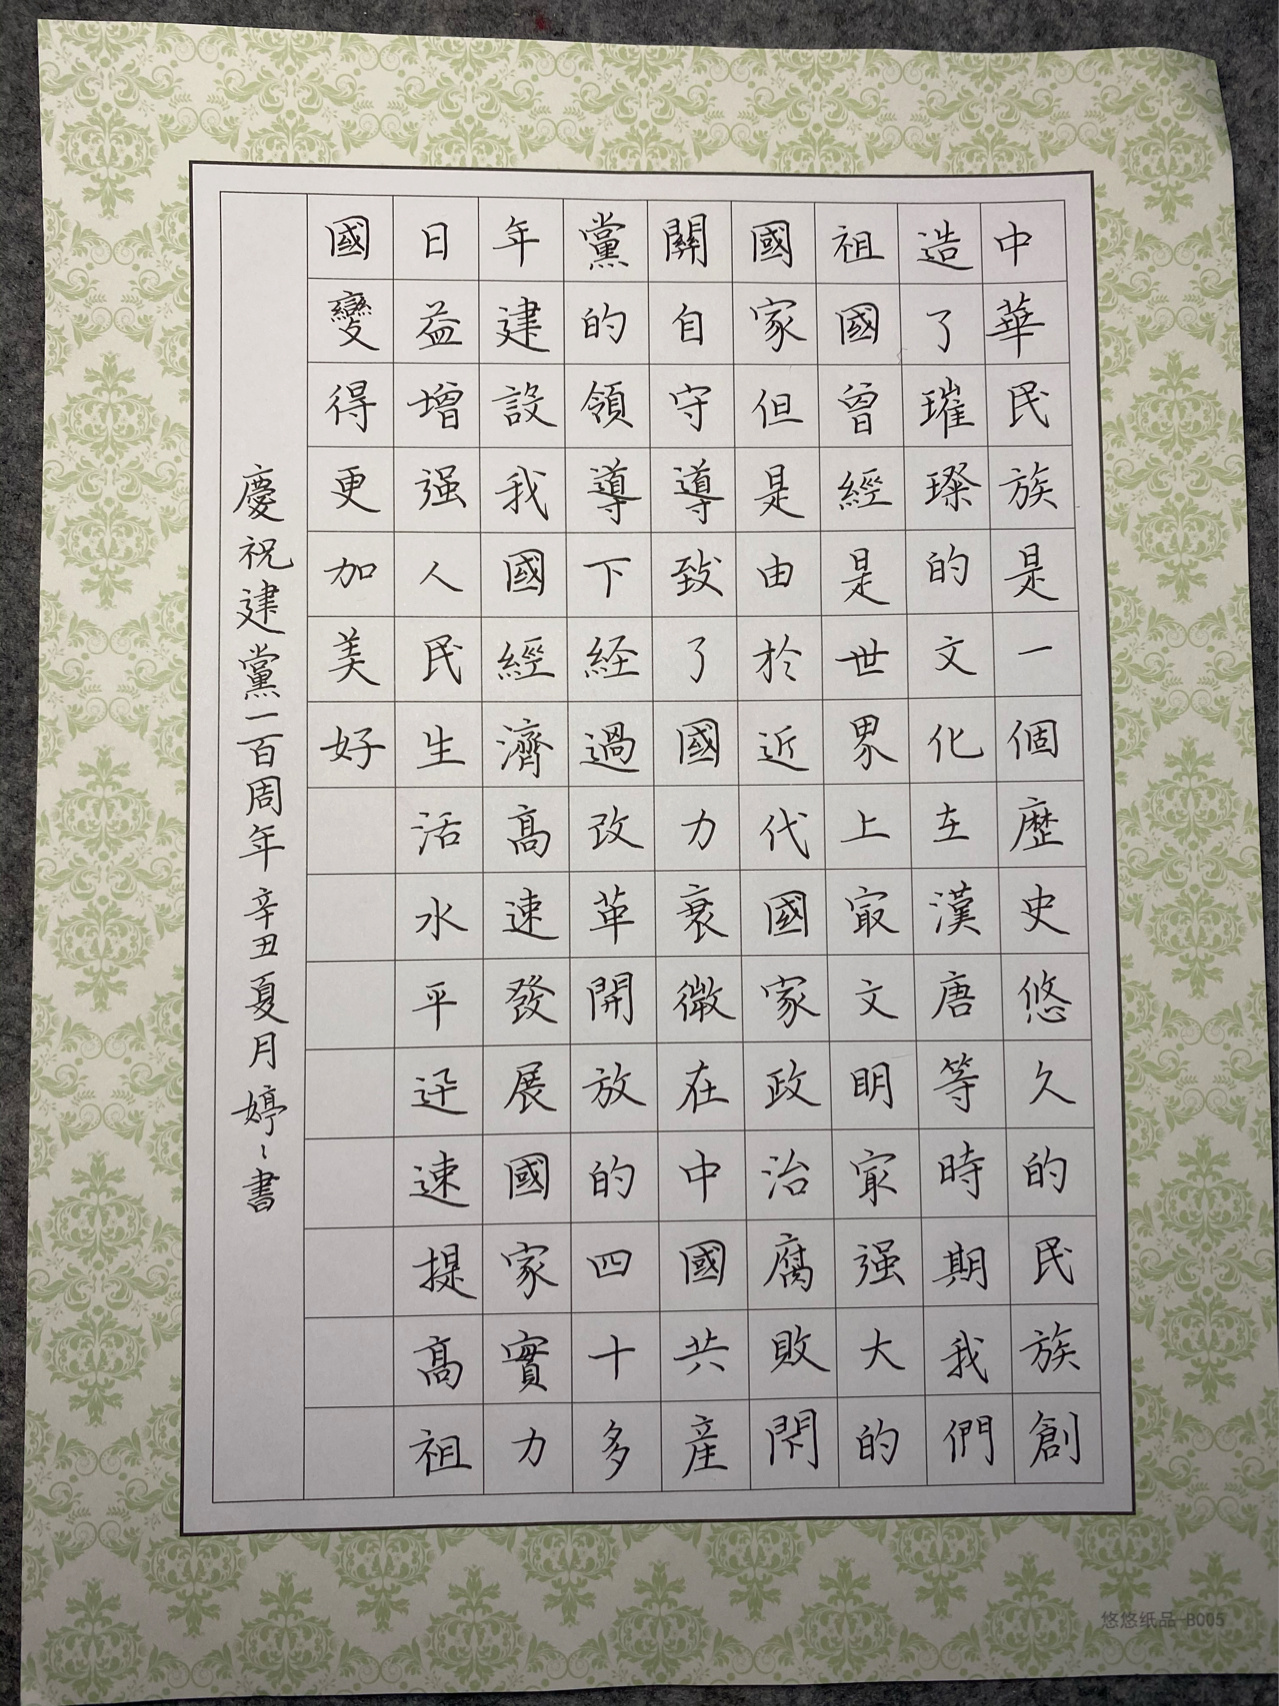 中華民族是一個歷史悠久的民族創
造了璀璨的文化在漢唐等時期我們
祖國曾經是世界上最文明最强大的
國家但是由於近代國家政治腐敗閉
關自守導致了國力衰微在中國共産
黨的領導下经過改革開放的四十多
年建設我國經濟高速發展國家實力
日益增强人民生活水平迅速提高祖
國變得更加美好
慶祝建黨一百周年辛丑夏月婷〻書
悠悠纸品-B005